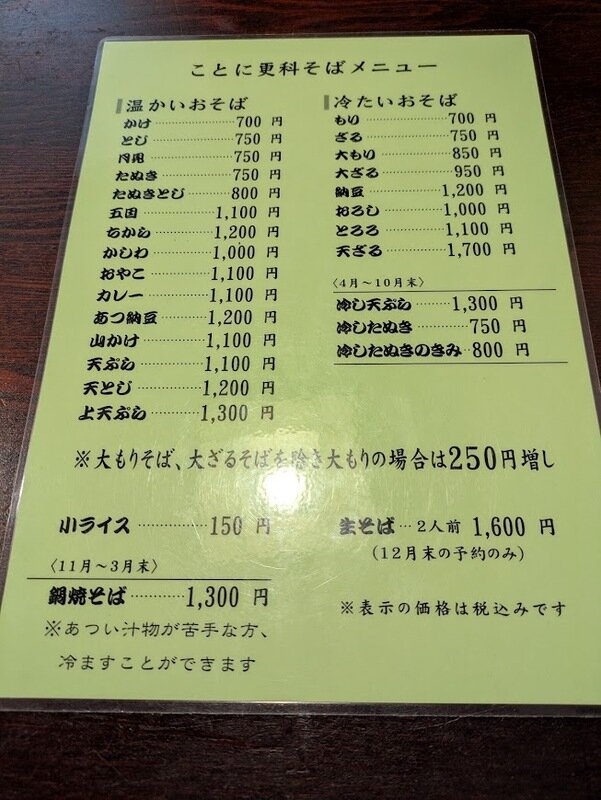 ことに更科そばメニュー
温かいおそば
かけ 700 円
とじ 750 円
月見 750 円
たぬき 750 円
たぬきとじ 800 円
五目 1,100 円
ちから 1,200 円
かしわ 1,000 円
おやこ 1,100 円
カレー 1,100 円
あつ納豆 1,200 円
山かけ 1,100 円
天ぷら 1,100 円
天とじ 1,200 円
上天ぷら 1,300 円
冷たいおそば
もり 700 円
ざる 750 円
大もり 850 円
大ざる 950 円
納豆 1,200 円
おろし 1,000 円
とろろ 1,100 円
天ざる 1,700 円
〈4月～10月末〉
冷し天ぷら 1,300 円
冷したぬき 750 円
冷したぬきのきみ 800 円
※大もりそば、大ざるそばを除き大もりの場合は250円増し
小ライス 150 円
〈11月～3月末〉
鍋焼そば 1,300 円
※あつい汁物が苦手な方、
冷ますことができます
生そば… 2人前 1,600 円
(12月末の予約のみ)
※表示の価格は税込みです